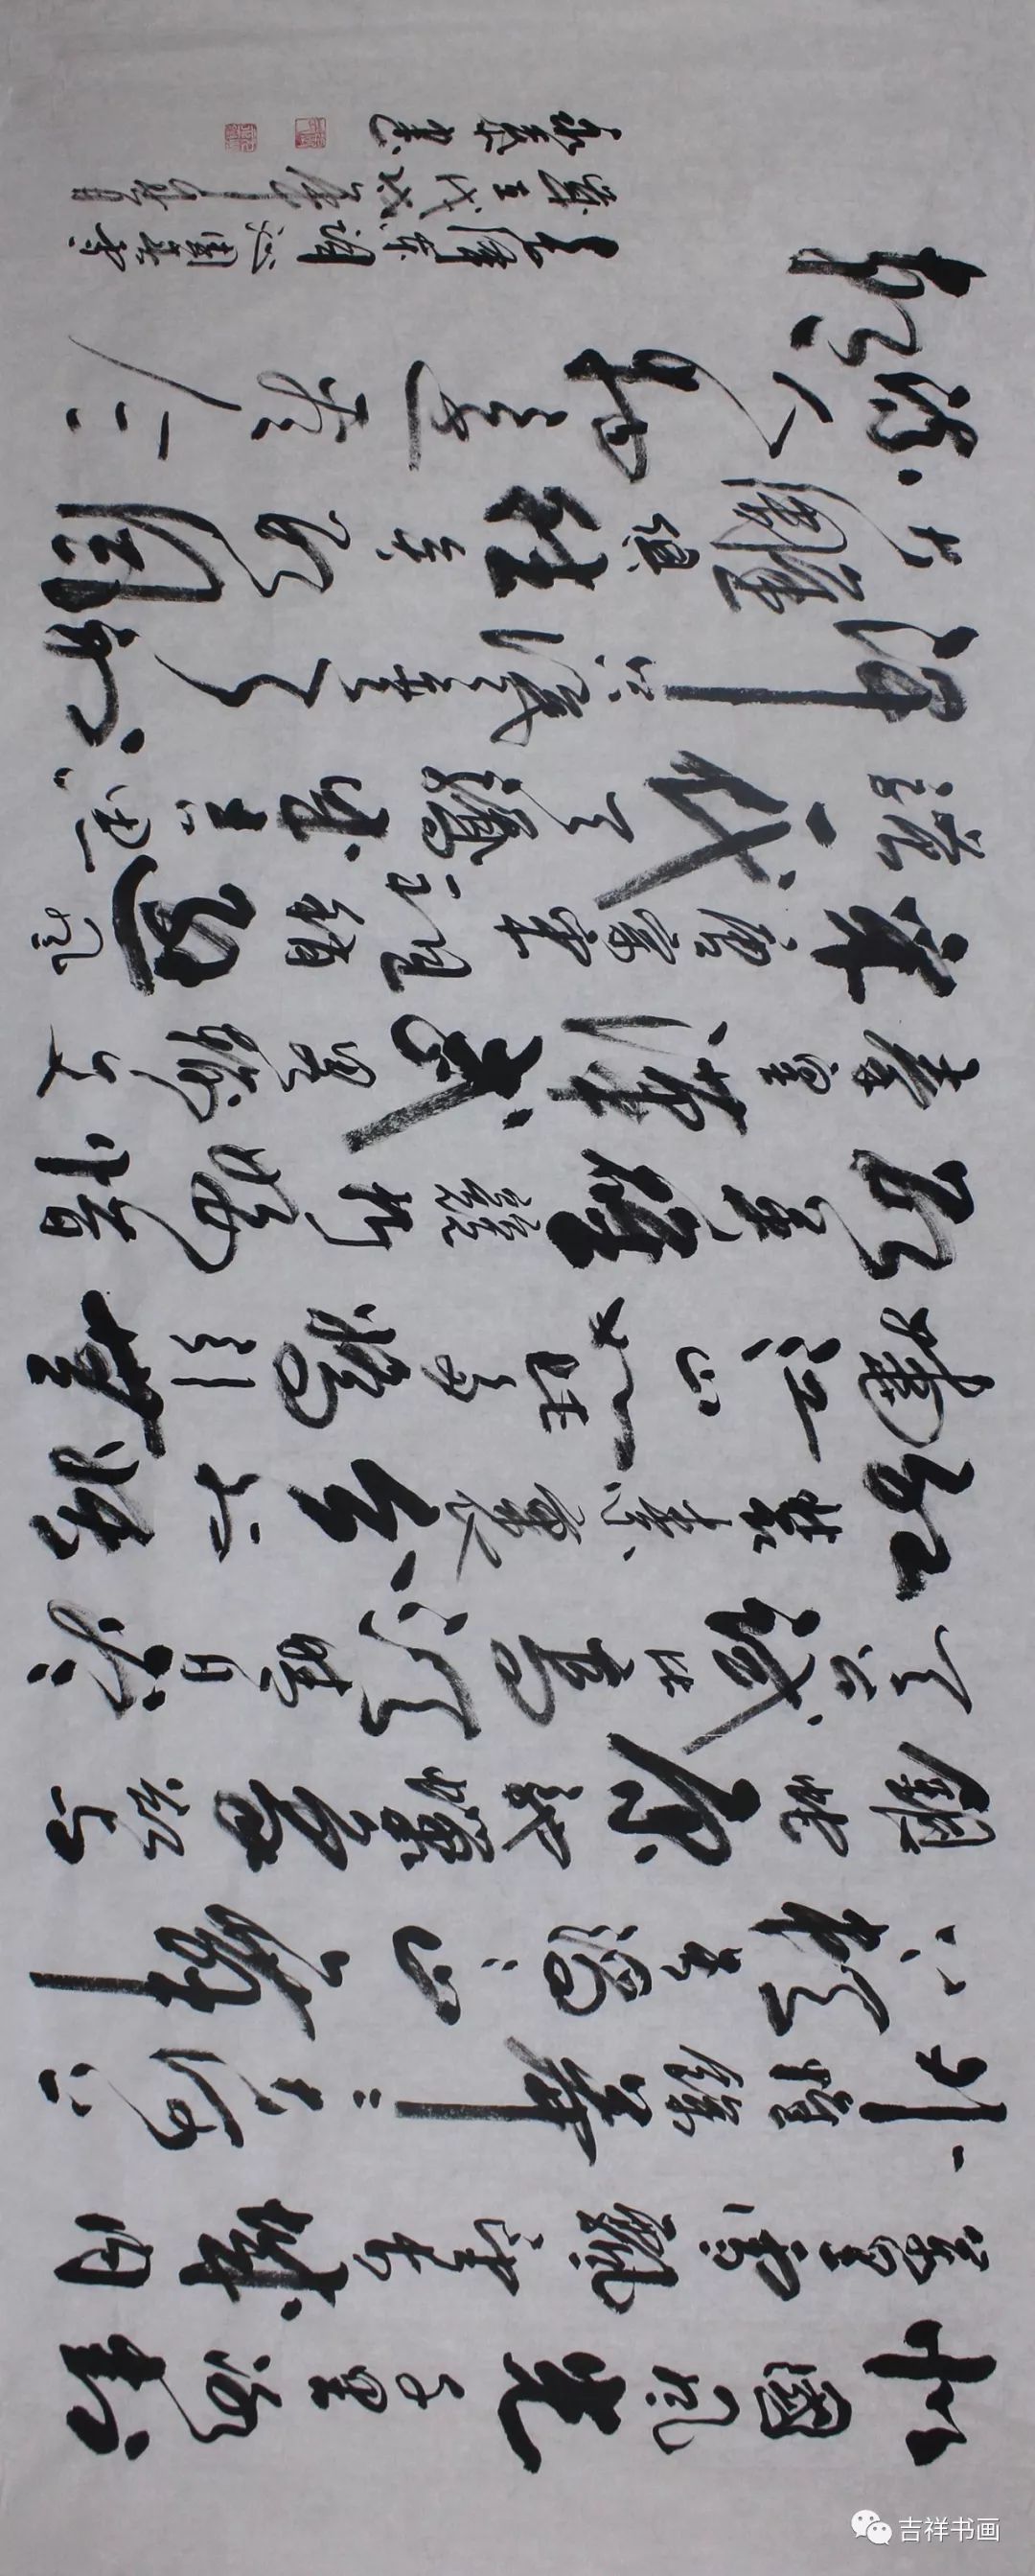 北國風光千里冰封
萬里雪飄望長城内
外惟餘莽莽大河上
下頓失滔滔山舞
銀蛇原馳蠟象欲與
天公試比高須晴日看
紅裝素裹分外妖
嬈江山如此多嬌引無
數英雄競折腰惜
秦皇漢武略輸文
采唐宗宋祖稍遜風
騷一代天驕成吉思
汗只識彎弓射
大雕俱往矣數風
流人物還看今
朝
毛澤東詞沁園春雪
歲在戊戌年
書
吉祥书画